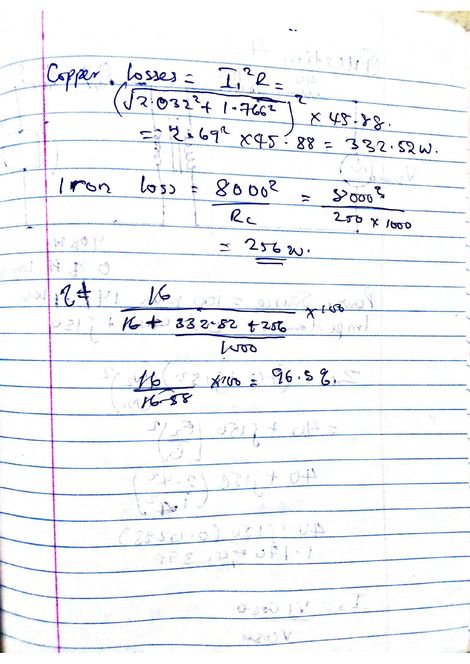 Copper losses = I₁²R =
(√2.032² + 1.766²)² × 45.88.
= 2.69² × 45.88 = 332.52w.
Iron loss = 8000² / Rc = 8000² / 250 × 1000
= 256 w.
η = 16 / 16 + 332.52 + 256 / 1000 × 100
16 / 16.58 × 100 = 96.5%.